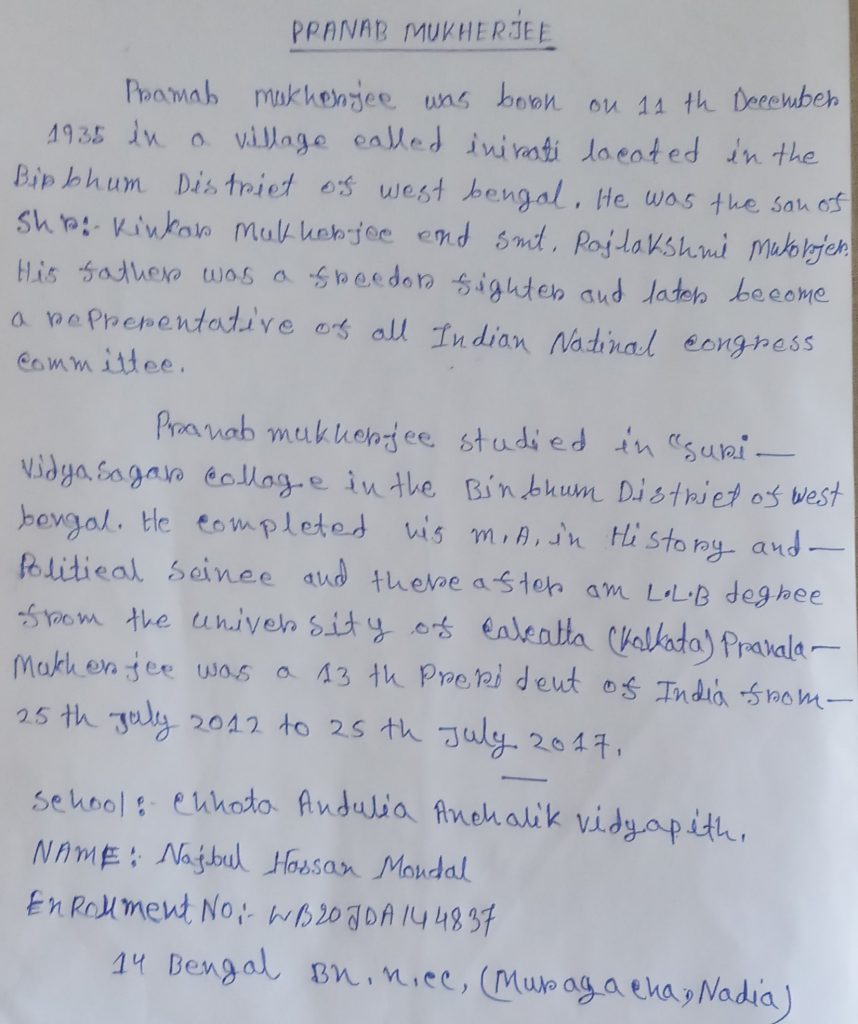 PRANAB MUKHERJEE
Pranab mukherjee was born on 11 th December
1935 in a village called inirati located in the
Birbhum District of west bengal. He was the son of
Shr:- Kinkar Mukherjee end Smt. Rajlakshmi Mukorjee.
His father was a freedom fighter and later become
a reprerentative of all Indian Natinal congress
committee.
Pranab mukherjee studied in "suri —
vidyasagar collage in the Birbhum District of west
bengal. He completed his M.A. in History and —
Political Seince and there after am L.L.B degree
from the university of Calcatta (Kolkata) Pranala —
Mukherjee was a 13 th Prerident of India from —
25 th july 2012 to 25 th July 2017.
School :- Chhota Andulia Anchalik vidyapith.
NAME :- Najbul Hossan Mondal
Enrollment No :- WB20JDA144837
14 Bengal Bn. n.cc, (Muragacha, Nadia)